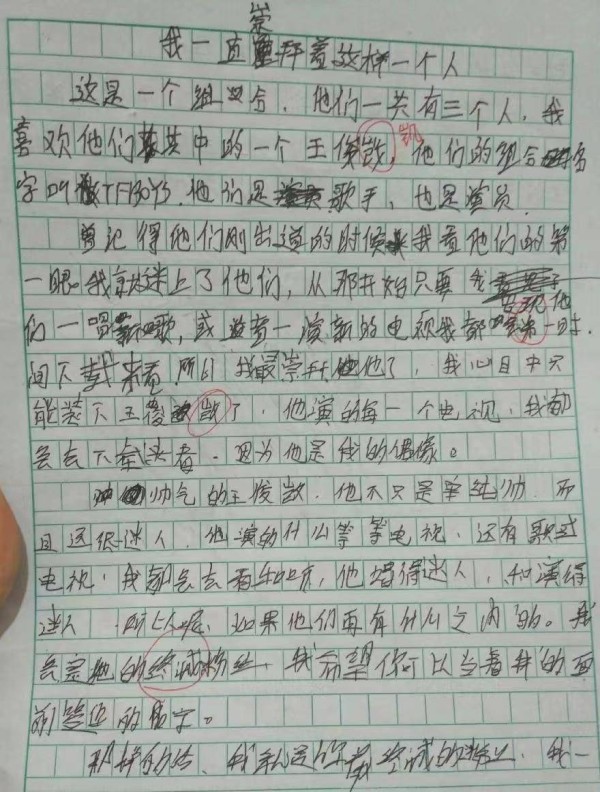 崇
我一直拜着这样一个人
这是一个组合，他们一共有三个人，我
喜欢他们其中的一个王俊凯，他们的组合名
凯
字叫TFBOYS，他们是歌手，也是演员。
曾记得他们刚出道的时候，我看他们的第
一眼。我就迷上了他们，从那开始只要
出现他
们一唱新歌，或者一演新的电视我都第一时
间下载来看，所以我最崇拜他了，我心目中只
能装下王俊凯了，他演的每一个电视，我都
会去下载来看，因为他是我的偶像。
帅气的王俊凯，他不只是单纯帅，而
且还很迷人，他演的什么等等电视，还有歌或
电视，我都会去看和听，他唱得迷人，和演得
迷人，所以呢，如果他们再有什么之内的。我
会是他的终诚粉丝，我希望你可以当着我的面
前签你的名字。
那样的话，我就是你最终诚的粉丝，我一